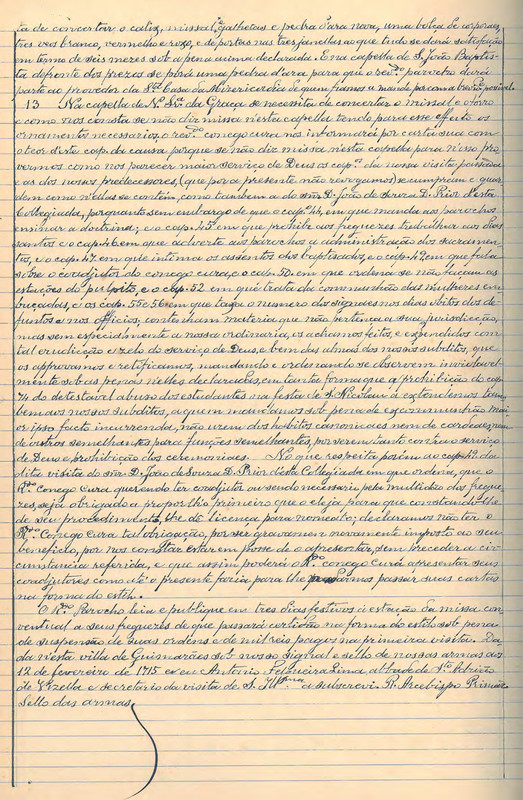 ta de concertar o calix, missal, galhetas e pedra d'ara nova, uma bolça de corporaes,
tres veos branco, vermelho e roxo, e de portas nas tres janellas ao que tudo se dará satisfação
em termo de seis mezes sob a pena acima declarada. E na capella de S. João Baptis-
ta defronte dos prezos se porá uma pedra d'ara para que o rev.do parocho dará
parte ao provedor da Sta. Casa da Misericordia de quem fiamos a mande pôr com a brevid.e possivel.
13 Na capella de N. Sra. da Graça se necessita de concertar o missal e o forro
e como nos consta se não diz missa n'esta capella tendo para esse effeito os
ornamentos necessarios, o rev.do conego cura nos informará por carta sua com
o teor d'este cap. da causa porque se não diz missa n'esta capella para n'isso pro-
vermos como nos parecer maior serviço de Deus os cap.os da nossa visita passada
e as dos nossos predecessores, (que por a presente não revogamos) se cumpram e guar-
dem como n'ellas se contém, como tambem a do snr. D. João de Sousa D. Prior d'esta
Collegiada, porquanto sem embargo de que o cap. 44, em que manda aos parochos
ensinar a doutrina; e o cap. 45 em que prohibe aos freguezes trabalhar aos dias
santos e o cap. 46 em que adverte aos parochos a administração dos sacramen-
tos, e o cap. 47 em que intima os assentos dos baptisados, e o cap. 49 em que falla
sobre o coadjutor do conego cura, e o cap. 50 em que ordena se não façam as
estações do pulpito, e o cap. 52 em que trata da communhão das mulheres em-
buçadas, e os cap. 55 e 56 em que taxa o numero dos signaes nos dias obitos dos de-
funtos e nos officios, contenham materia que não pertença a sua jurisdicção,
mas sem especialmente a nossa ordinaria, os achamos feitos, e expendidos com
tal erudicção e zelo do serviço de Deus, e bem das almas dos nossos subditos, que
os approvamos e retificamos, mandando e ordenando se observem inviolavel-
mente sob as penas n'elles declaradas, em tanta forma que a prohibição do cap.
74 do detestavel abuso dos estudantes na festa de S. Nicolau a extendemos tam-
bem aos nossos subditos, a quem mandamos sob pena de excommunhão mai-
or ipso facto incurrenda, não usem dos habitos canonicaes nem de cardeaes, nem
de outros semelhantes para funções semelhantes, por serem tanto contra o serviço
de Deus e prohibição dos ceremoniaes. No que respeita porém ao cap. 49 da
dita visita do snr. D. João de Sousa D. Prior d'esta Collegiada em que ordena, que o
R.do Conego Cura querendo ter coadjutor ou sendo necessario pela multidão dos fregue-
zes seja obrigado a propor-lh'o primeiro que o eleja para que constando-lhe
de seu procedimento, lhe dê licença para nomeal-o; declaramos não ter o
R.do Conego Cura tal obrigação, por ser gravamen novamente imposto ao seu
beneficio, por nos constar estar em posse de o apresentar, sem preceder a cir-
cumstancia referida, e que assim poderá o R.do conego cura apresentar seus
coadjutores como até o presente fazia para lhe passarmos passar suas cartas
na forma do estilo.
O R.do Parocho leia e publique em tres dias festivos á estação da missa con-
ventual a seus freguezes de que passará certidão na forma do estilo sob pena
de suspensão de suas ordens e de mil reis pagos na primeira visita. Da-
da n'esta villa de Guimarães sob nosso signal e sello de nossas armas aos
12 de fevereiro de 1715 e eu Antonio Siqueira Lima abbade de Sto. Adrião
de Vizella e secretario da visita de S. Ill.ma a subscrevi. R. Arcebispo Primaz
Sello das armas.